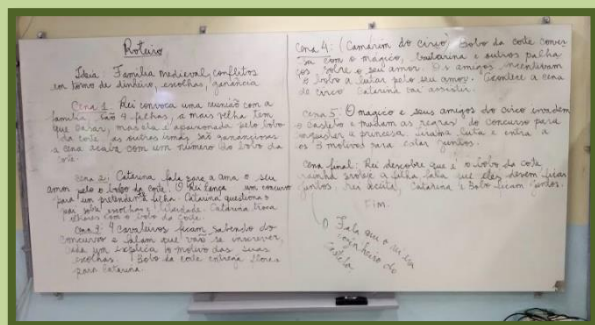 Roteiro
Ideia: Família medieval, conflitos
em torno de dinheiro, escolhas, ganância
Cena 1: Rei convoca uma reunião com a
família, são 4 filhas, a mais velha tem
que casar, mas ela é apaixonada pelo bobo
da corte, as outras irmãs são
a cena acaba com um número do bobo da
corte.
Cena 2: Catarina fala para a ama o seu
amor pelo o bobo da corte. O Rei lança um concurso
para um pretendente à filha. Catarina questiona o
pai sobre escolhas, liberdade. Catarina troca
olhares com o bobo da corte.
Cena 3: 4 Cavaleiros ficam sabendo do
concurso e falam que vão se inscrever,
cada um explica o motivo das suas
escolhas. Bobo da corte entrega flores
para Catarina.
Cena 4: (Camarim do circo) Bobo da corte conver-
sa com o mágico, bailarina e outros palha-
ços sobre o seu amor. Os amigos incentivam
o bobo a lutar pelo seu amor. Acontece a cena
de circo Catarina vai assistir.
Cena 5: O mágico e seus amigos do circo invadem
o castelo e mudam as regras do concurso para
a princesa, uma luta e entra a
os 3 motivos para estar juntos.
Cena final: Rei descobre que é o bobo da corte,
rainha a filha, fala que eles devem ficar
juntos, rei aceita, Catarina e Bobo ficam juntos.
FIM.
O Fala que o
do
castelo